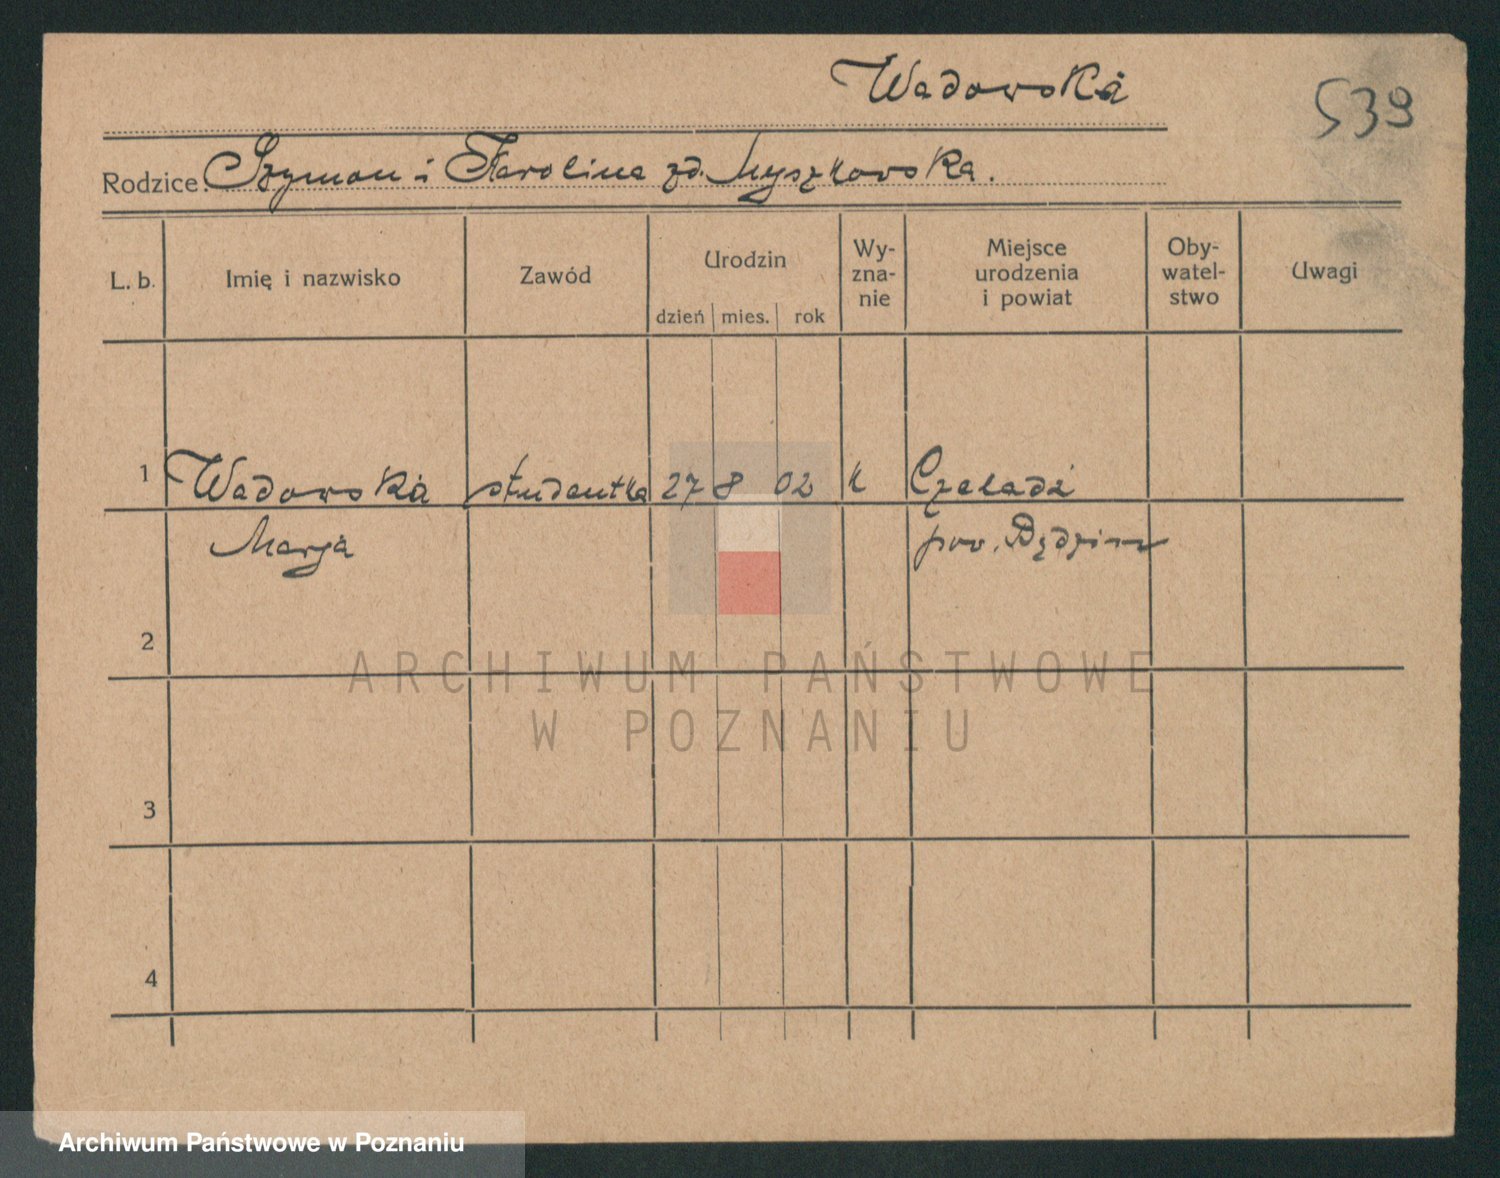 Wadowska
539
Rodzice. Szymon i Karolina zd. Myszkowska.
L. b. Imię i nazwisko Zawód Urodzin dzień mies. rok Wy-zna-nie Miejsce urodzenia i powiat Oby-watel-stwo Uwagi
1 Wadowska studentka 27 8 02 k Czeladź
Marja pow. Będzin
2
3
4
ARCHIWUM PAŃSTWOWE
W POZNANIU
Archiwum Państwowe w Poznaniu